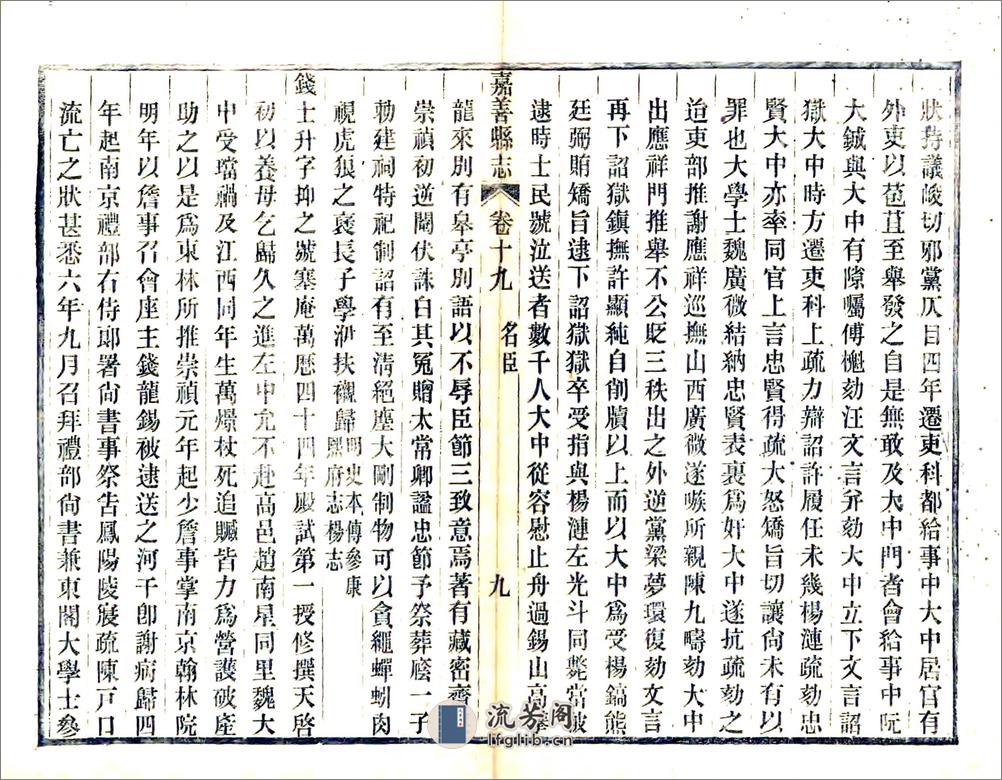 狀持議峻切邪黨仄目四年遷吏科都給事中大中居官有
外吏以苞苴至舉發之自是無敢及大中門者會給事中阮
大鋮與大中有隙囑傅櫆劾汪文言并劾大中立下文言詔
獄大中時方遷吏科上疏力辯詔許履任未幾楊漣疏劾忠
賢大中亦率同官上言忠賢得疏大怒矯旨切讓尚未有以
罪也大學士魏廣微結納忠賢表裏爲奸大中遂抗疏劾之
迨吏部推謝應祥巡撫山西廣微遂嗾所親陳九疇劾大中
出應祥門推舉不公貶三秩出之外逆黨梁夢環復劾文言
再下詔獄鎮撫許顯純自削牘以上而以大中爲受楊鎬熊
廷弼賄矯旨逮下詔獄獄卒受指與楊漣左光斗同斃當被
逮時士民號泣送者數千人大中從容慰止舟過錫山高攀
嘉善縣志 卷十九 名臣 九
龍來別有皋亭別語以不辱臣節三致意焉著有藏密齋
崇禎初逆閹伏誅白其冤贈太常卿謚忠節予祭葬廕一子
勅建祠特祀制詔有至淸絕塵大剛制物可以貪繩蟬蚓肉
視虎狼之褒長子學洢扶櫬歸明史本傳參康熙府志楊志
錢士升字抑之號塞庵萬歷四十四年殿試第一授修撰天啓
初以養母乞歸久之進左中允不赴高邑趙南星同里魏大
中受璫禍及江西同年生萬燝杖死追贓皆力爲營護破產
助之以是爲東林所推崇禎元年起少詹事掌南京翰林院
明年以詹事召會座主錢龍錫被逮送之河干卽謝病歸四
年起南京禮部右侍郞署尙書事祭告鳳陽陵寢疏陳戸口
流亡之狀甚悉六年九月召拜禮部尙書兼東閣大學士參
流芳閣
lfglib.cn